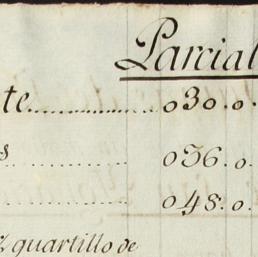 Parcial
te.................. 030.0.
s .................. 036.0.
.................. 048.0.
quartillo de